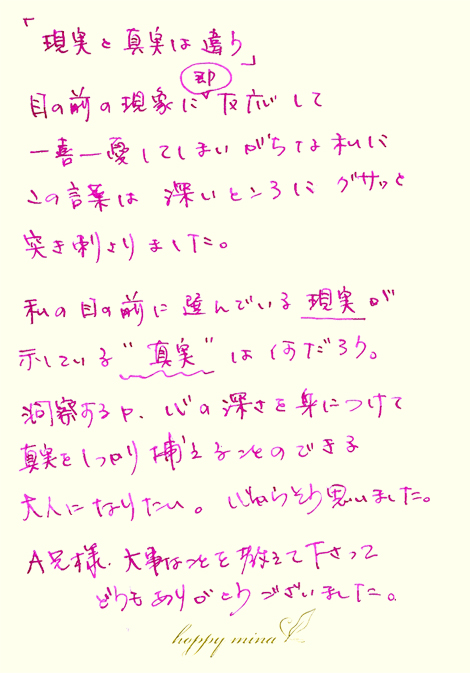 「現実と真実は違う」
即
目の前の現象に反応して
一喜一憂してしまいがちな私に
この言葉は深いところにグサッと
突き刺さりました。
私の目の前に運んでいる現実が
示している"真実"は何だろう。
洞察する心の深さを身につけて
真実をしっかり捕えることのできる
大人になりたい。心からそう思いました。
A兄様、大事なことを教えて下さって
どうもありがとうございました。
happy mina